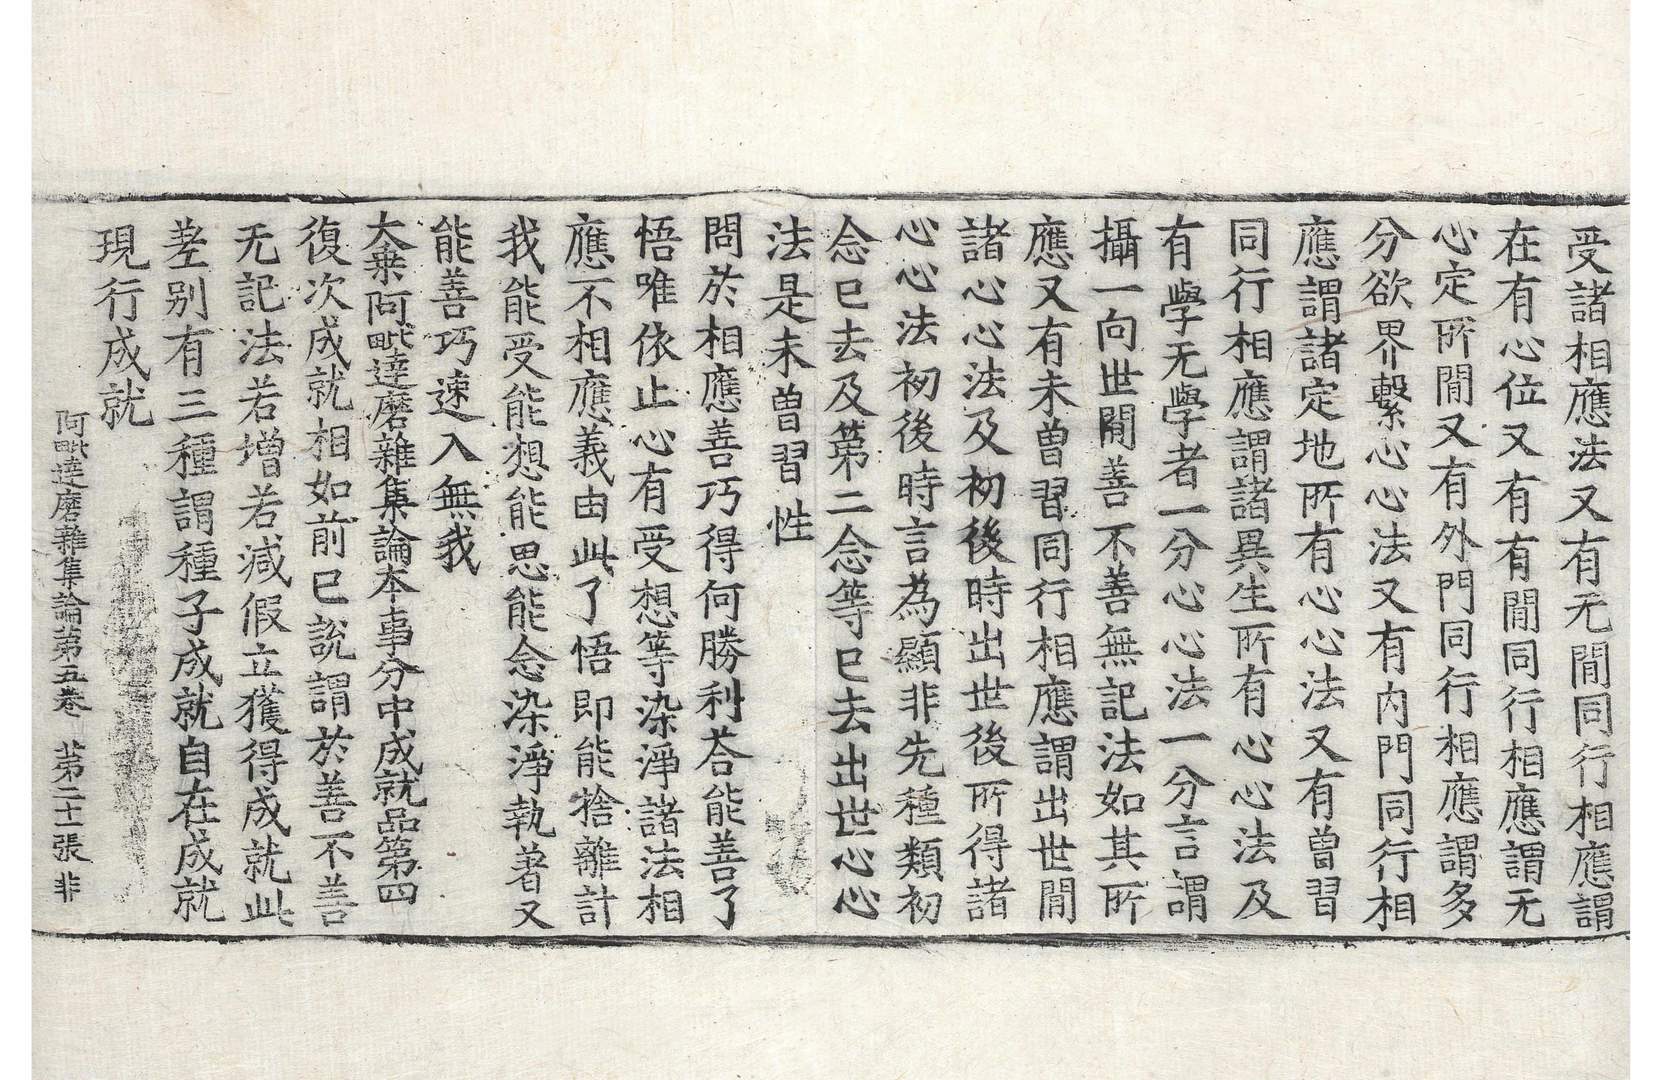 受諸相應法又有无閒同行相應謂
在有心位又有有閒同行相應謂无
心定所閒又有外門同行相應謂多
分欲界繫心心法又有内門同行相
應謂諸定地所有心心法又有曾習
同行相應謂諸異生所有心心法及
有學无學者一分心心法一分言謂
攝一向世閒善不善無記法如其所
應又有未曾習同行相應謂出世閒
諸心心法及初後時出世後所得諸
心心法初後時言為顯非先種類初
念已去及第二念等已去出世心心
法是未曾習性
問於相應善巧得何勝利荅能善了
悟唯依止心有受想等染淨諸法相
應不相應義由此了悟即能捨離計
我能受能想能思能念染淨執著又
能善巧速入無我
大乗阿毗達磨雜集論本事分中成就品第四
復次成就相如前已說謂於善不善
无記法若增若減假立獲得成就此
差别有三種謂種子成就自在成就
現行成就
阿毗達磨雜集論第五卷 第二十一張 非